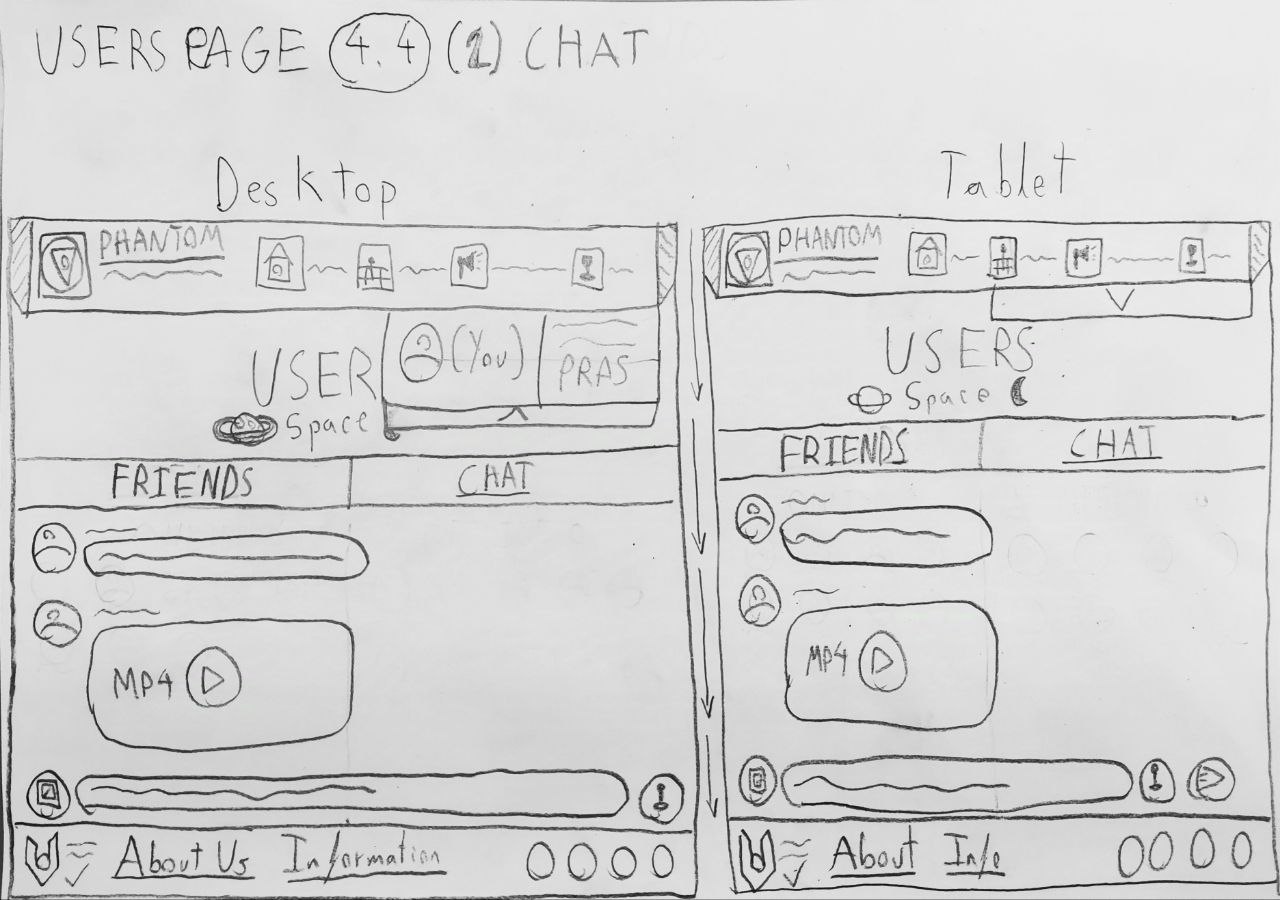 USERS PAGE 4.4 (1) CHAT
Desktop
PHANTOM
(You)
PRAS
USER
Space
FRIENDS CHAT
MP4
About Us Information
Tablet
PHANTOM
USERS
Space
FRIENDS CHAT
MP4
About Info